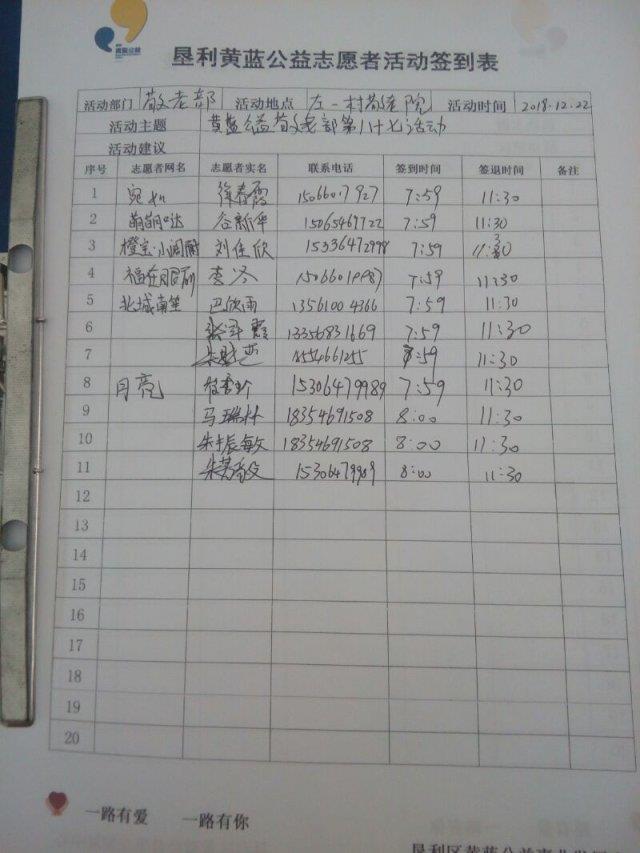 黄蓝公益
垦利黄蓝公益志愿者活动签到表
活动部门 敬老部 活动地点 左一村敬老院 活动时间 2018.12.22
活动主题 黄蓝公益敬老部第八十七活动
活动建议
序号 志愿者网名 志愿者实名 联系电话 签到时间 签退时间 备注
1 宛如 徐春霞 15066017927 7:59 11:30
2 萌萌哒 谷新华 15065469722 7:59 11:30
3 橙宝·小闹闹 刘佳欣 15336472998 7:59 11:30
4 福在眼前 李冬 15066019987 7:59 11:30
5 北城南笙 巴欣雨 13561004366 7:59 11:30
6 13356831669 7:59 11:30
7 7:59 11:30
8 月亮 15306479989 7:59 11:30
9 马瑞林 18354691508 8:00 11:30
10 朱振敏 18354691508 8:00 11:30
11 朱芳文 15306479989 8:00 11:30
12
13
14
15
16
17
18
19
20
一路有爱 一路有你
垦利区黄蓝公益事业发展